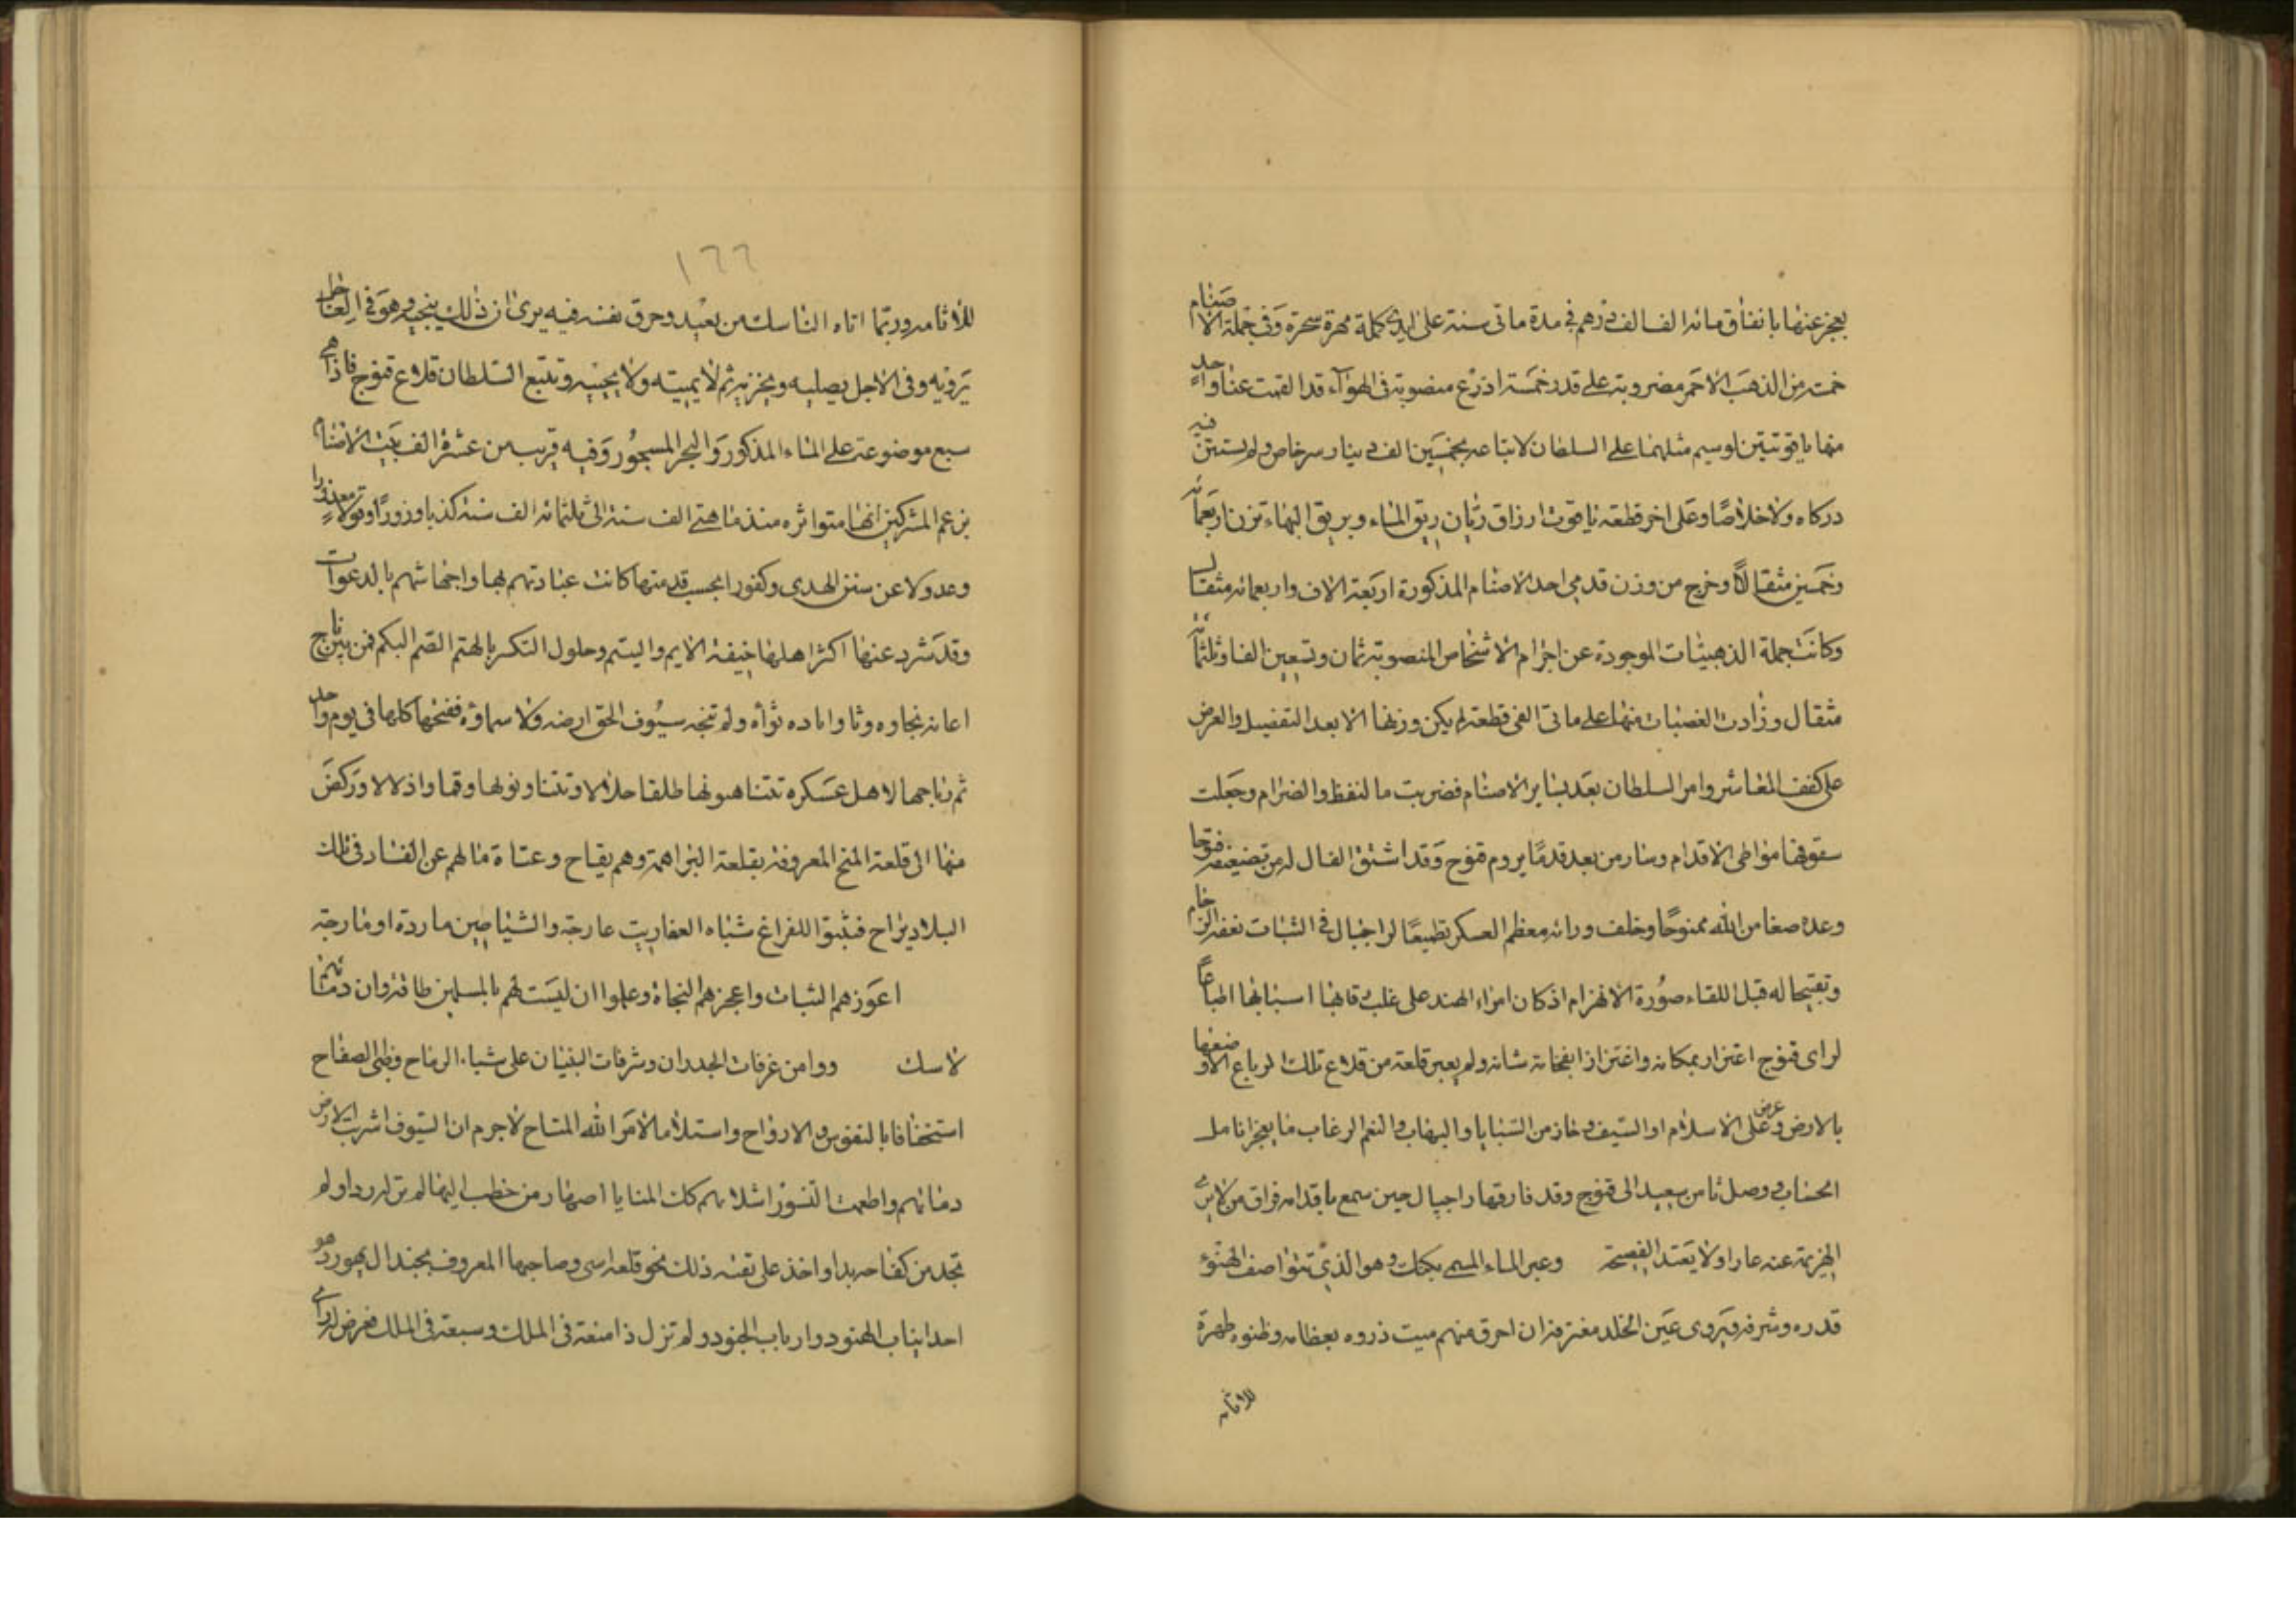 يعجز عنها بانفاق مائة الف الف درهم في مدة مائتي سنة على ايدي كملة مهرة سحرة وفي جملة الاصنام
خمسة من الذهب الاحمر مضروبة على قدر خمسة اذرع منصوبة في الهواء قد القمت عينا واحد
منها ياقوتتين لو سيم مثلهما على السلطان لابتاعه بخمسين الف دينار سرخاص ولم يستبن فيه
دركا ولا خلاصا وعلى اخر قطعة ياقوت ازرق ريان ريق الماء وبريق البهاء تزن اربعمائة
وخمسين مثقالا وخرج من وزن قدمي احد الاصنام المذكورة اربعة الاف واربعمائة مثقال
وكانت جملة الذهبيات الموجودة عن اجرام الاشخاص المنصوبة ثمان وتسعين الفا وثلثمائة
مثقال وزادت الفضيات منها على مائتي الفي قطعة لم يكن وزنها الا بعد التفصيل والعرض
على كفف المعاشر وامر السلطان بعد بساير الاصنام فضربت مالنفظ والضرام وجعلت
سقوفها مواطئ الاقدام وسار من بعد قدما يروم قنوج وقد اشتق الفال له من تضعيفه فتوحا
وعده صعا من الله ممنوحا وخلف ورائه معظم العسكر تطميعا لراجبال في الثبات نفقه الزحام
وتقبيحا له قبل اللقاء صورة الانهزام اذ كان امراء الهند على غلب رقابها اسبابها اطباعا
لراى قنوج اعتزار بمكانه واغتزازا بفخامة شانه ولم يعبر قلعة من قلاع تلك الرباع الا وضعها
بالارض وعرض على الاسلام او السيف وحاز من السبايا والنهاب والنعم الرغاب ما يعجز انامل
الحساب ووصل ثامن سعيد الى قنوج وقد فارقها راجيال حين سمع باقدامه فراق من لا يرى
الهزيمة عنه عارا ولا يعتد الفصيحة وعبر الماء المسمى بكنك وهو الذي تتواصف الهنود
قدره وشرفه ويروى عين الخلد مغترفه ان احرق منهم ميت ذروه بعظامه وظنوه طهرة
للاثامه
١٦٦
للاثامه وربما اتاه الناسك من بعيد وحرق نفسه فيه يرى ان ذلك ينجيه وهو في العاجل
يرويه وفي الاجل يصليه ويخزيه ثم لا يميته ولا يحييه وتتبع السلطان قلاع قنوج فاذا هي
سبع موضوعة على الماء المذكور والبحر المسجور وفيه قريب من عشرة الف بيت الاصنام
يزعم المشركين انها متواثره منذ مائتي الف سنة الى ثلثمائة الف سنة كذبا وزورا وقولا معذورا
وعدولا عن سنن الهدى وكفورا بحسب قدمتها كانت عبادتهم بها واجهاشهم بالدعوات
وقد شرد عنها اكثر اهلها خيفة الايم واليتم وحلول النكر بالهتم الصم البكم فمن بين ناج
اعانه نجاوه وثاو اباده ثواه ولم تنجه سيوف الحق ارضه ولا سماؤه ففتحها كلها في يوم واحد
ثم اباحها لاهل عسكره تتناهبونها طلقا حلالا وتتناولونها وقما واذلالا وركض
منها الى قلعة المنج المعروفة بقلعة البراهمة وهم بقاح وعتاة مالهم عن الفساد في تلك
البلاد براح فثبتوا للفراغ شباه العفاريت عارجة والشياطين ماردة او مارجة
اعوزهم الثبات واعجزهم النجاة وعلموا ان ليست لهم بالمسلمين طاقة وان دمائهم
لاسك ووا من غرفات الجدران وشرفات البنيان على شباء الرماح وظبى الصفاح
استخفافا بالنفوس والارواح واستلاما لامر الله المتاح لاجرم ان السيوف اشربت الارض
دمائهم واطعمت النسور اشلائهم كان المنايا اصهار من خطب اليها لم تزل ردا ولم
تجد من كفاحه بدا واخذ على تفئة ذلك نحو قلعة اسى وصاحبها المعروف بجندال بهور وهو
احد انياب الهنود وارباب الجنود ولم تزل ذا منعة في الملك وسبعة في الملك فعرض له راى